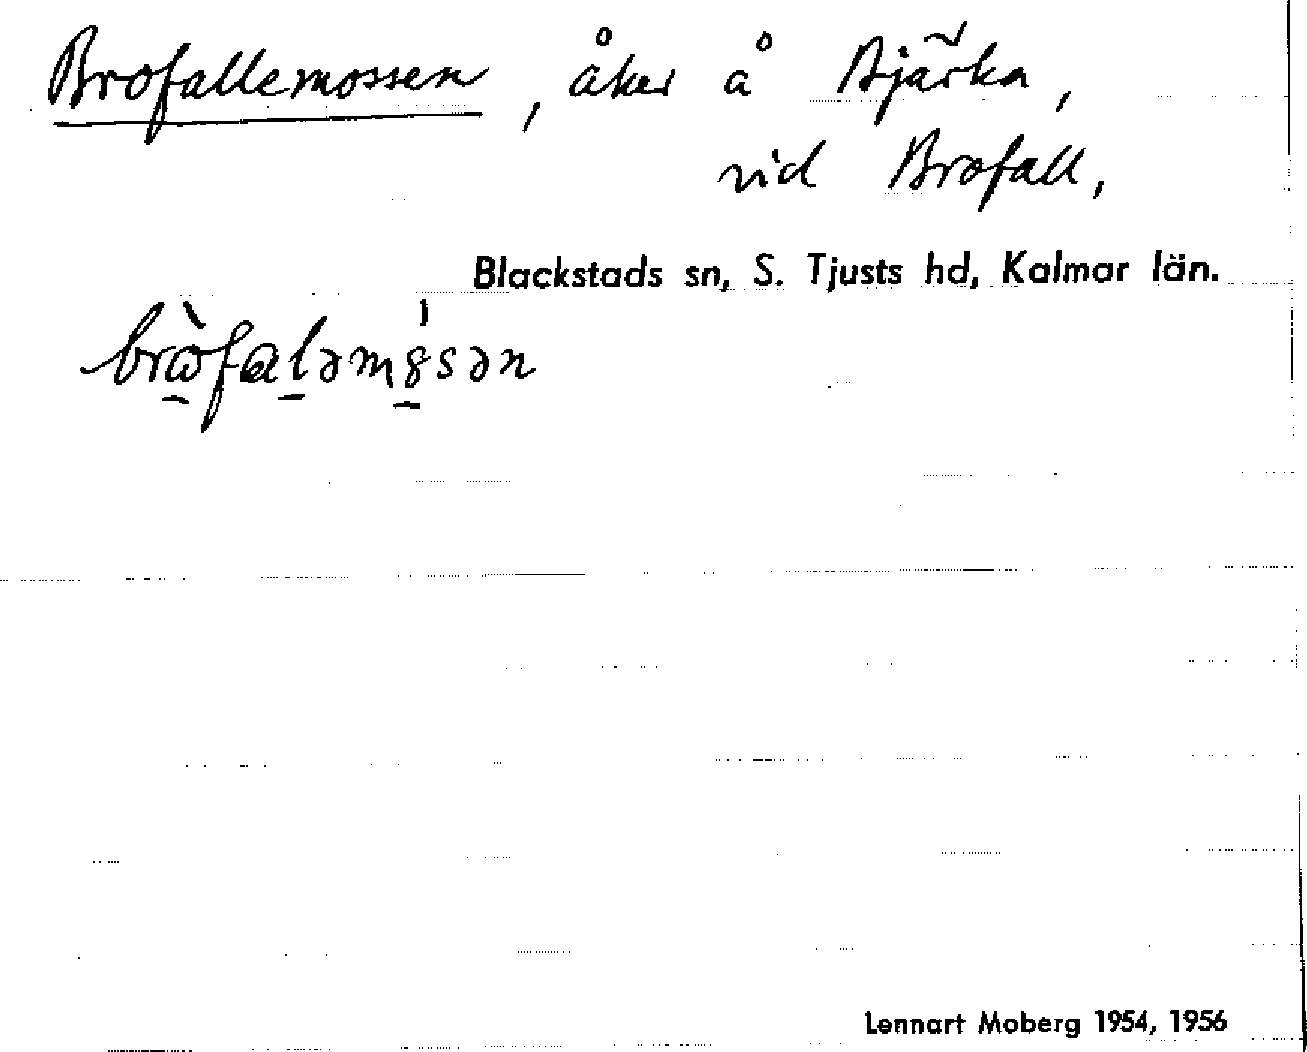 Brofallemossen, åker å Bjärka,
vid Brofall,
Blackstads sn, S. Tjusts hd, Kalmar län.
Lennart Moberg 1954, 1956